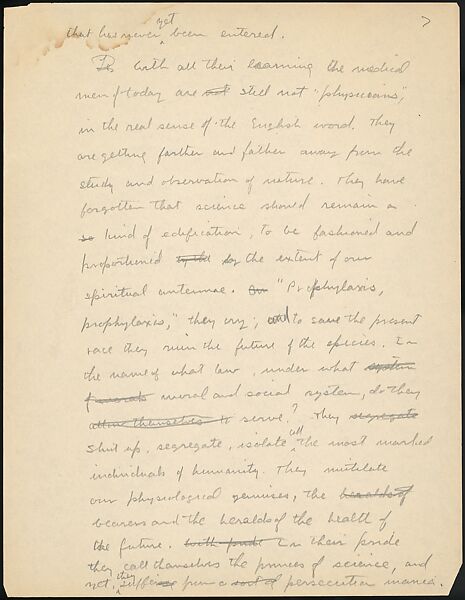 7
that has never yet been entered.
With all their learning the medical
men of today are not still not "physicians",
in the real sense of the English word. They
are getting farther and father away from the
study and observation of nature. They have
forgotten that science should remain a
so kind of edification, to be fashioned and
proportioned to the by the extent of our
spiritual antennae. Our "Prophylaxis,
prophylaxis," they cry; and to save the present
race they ruin the future of the species. In
the name of what law, under what system
of morals moral and social system, do they
allow themselves to serve? They segregate
shut up, segregate, isolate all the most marked
individuals of humanity. They mutilate
our physiological geniuses, the heralds of
bearers and the heralds of the health of
the future. With pride In their pride
they call themselves the princes of science, and
yet, they suffer from a sort of persecution mania.